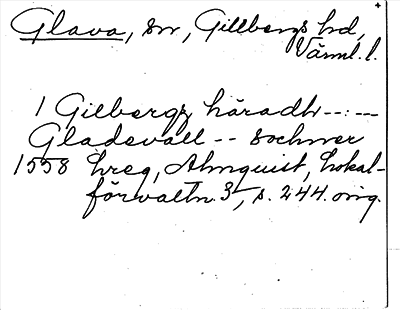 Glava, sn, Gillbergs hd,
Värml. l.
1 Gilbergz häradh --:--
Gladevall -- sochner
1558 hreg, Almquist, Lokal-
förvaltn. 3, s. 244. orig.